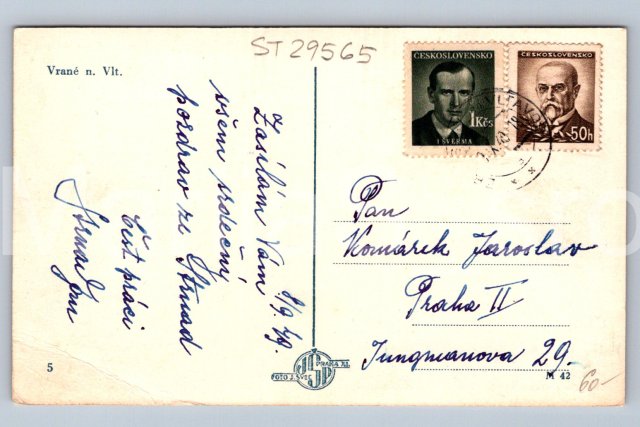 ST 29565
Vrané n. Vlt.
ČESKOSLOVENSKO
1 Kčs
J. ŠVERMA
ČESKOSLOVENSKO
50 h
8/9. 49.
Zasílám Vám
všem srdečný
pozdrav ze
Strnad
Čest práci
Strnad Jan
Pan
Komárek Jaroslav
Praha II
Jungmanova 29.
5
PRAHA XI.
FOTO J. ŠVEC
M 42
60-